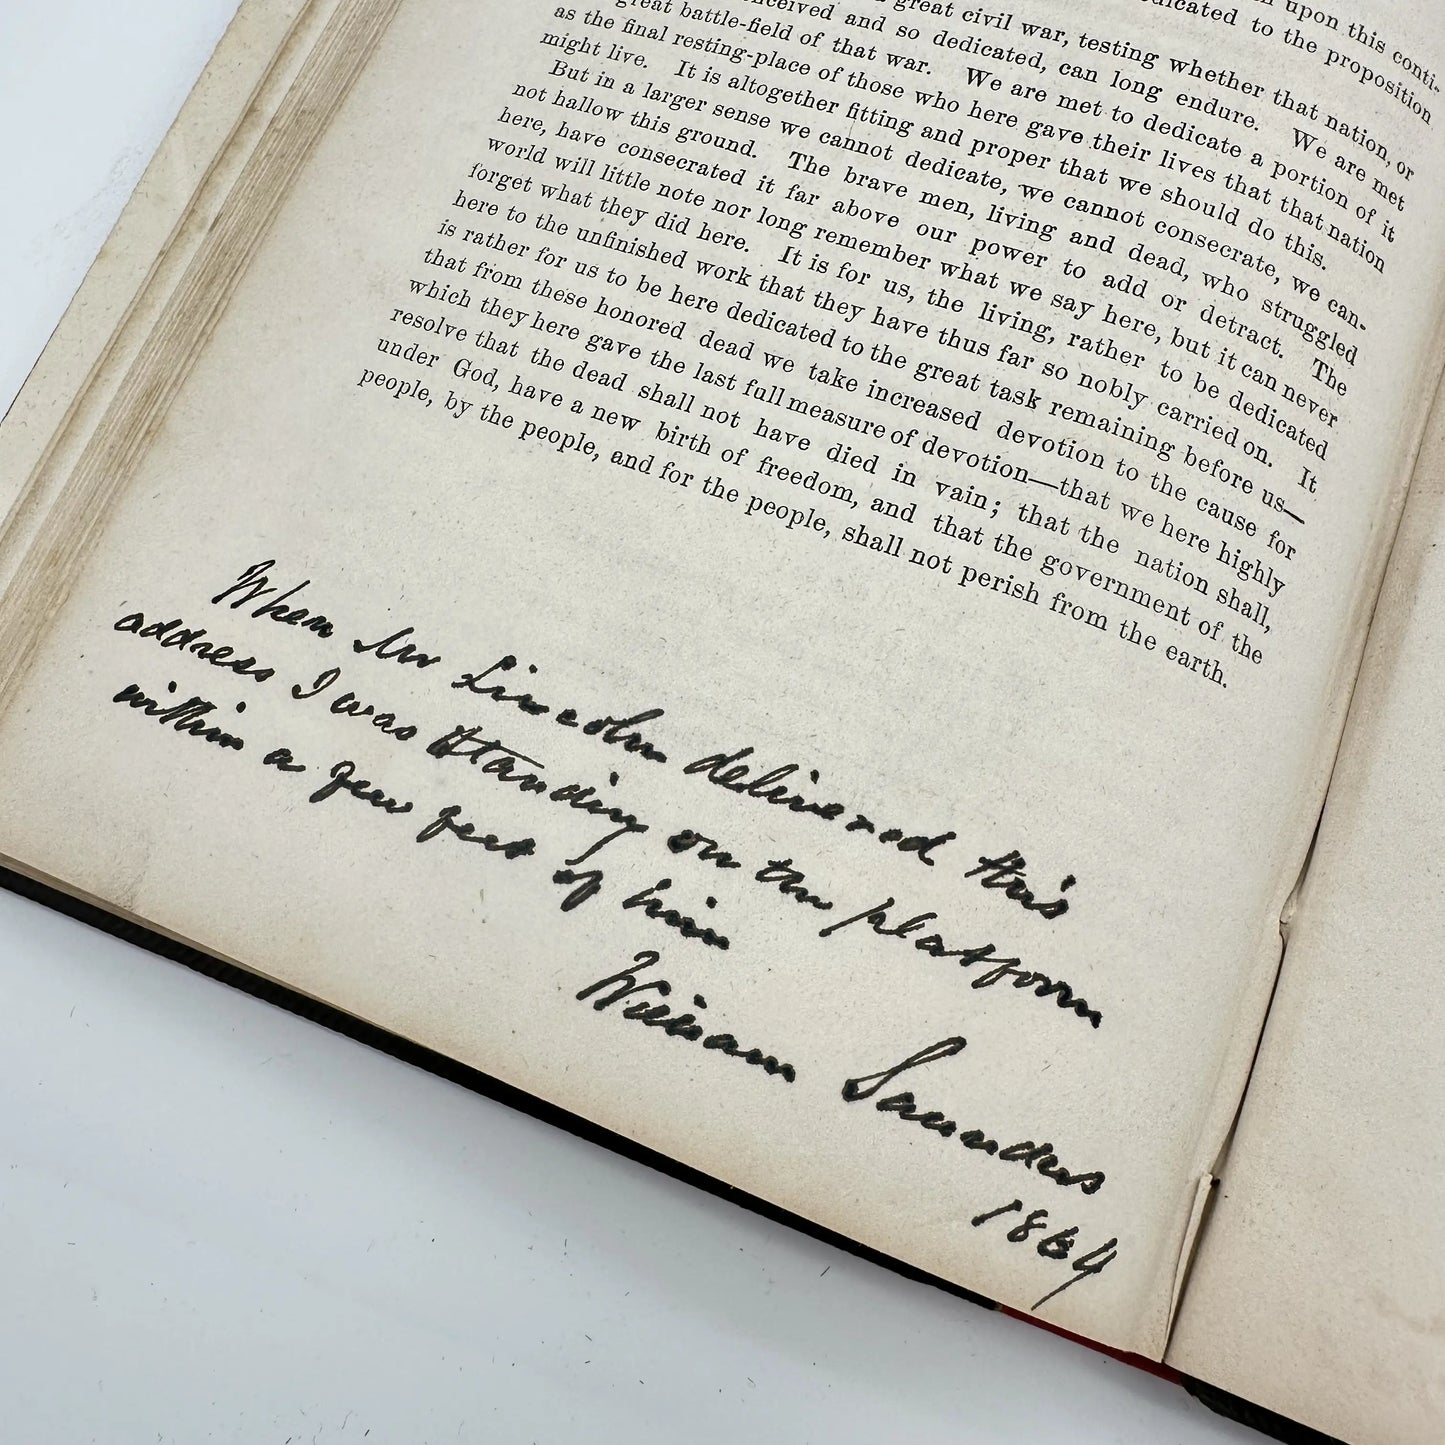 upon this conti-
dicated to the proposition
great civil war, testing whether that nation, or
and so dedicated, can long endure. We are met
great battle-field of that war. We are met to dedicate a portion of it
as the final resting-place of those who here gave their lives that that nation
might live. It is altogether fitting and proper that we should do this.
But in a larger sense we cannot dedicate, we cannot consecrate, we can-
not hallow this ground. The brave men, living and dead, who struggled
here, have consecrated it far above our power to add or detract. The
world will little note nor long remember what we say here, but it can never
forget what they did here. It is for us, the living, rather to be dedicated
here to the unfinished work that they have thus far so nobly carried on. It
is rather for us to be here dedicated to the great task remaining before us—
that from these honored dead we take increased devotion to the cause for
which they here gave the last full measure of devotion—that we here highly
resolve that the dead shall not have died in vain; that the nation shall,
under God, have a new birth of freedom, and that the government of the
people, by the people, and for the people, shall not perish from the earth.
When Mr Lincoln delivered this
address I was standing on the platform
within a few feet of him
William Saunders
1864